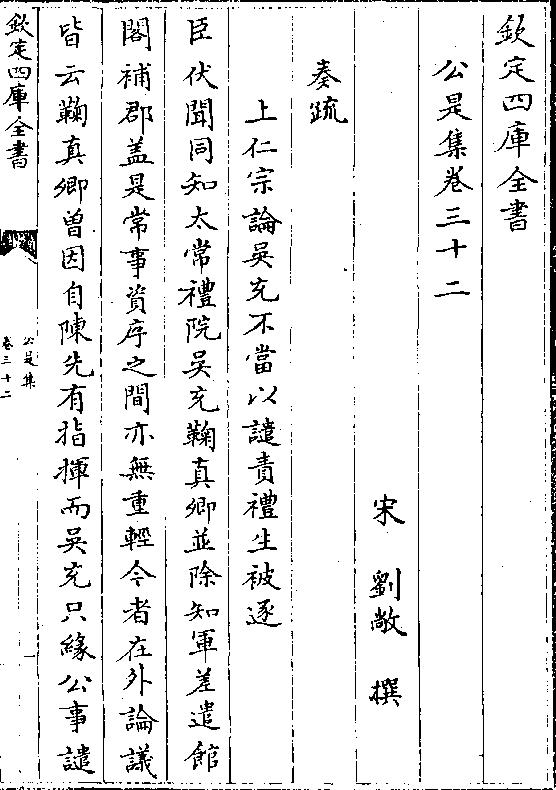 欽定四庫全書
公是集卷三十二
宋　劉敞　撰
奏疏
上仁宗論吳充不當以譴責禮生被逐
臣伏聞同知太常禮院吳充鞠真卿並除知軍差遣館
閣補郡盖是常事資序之間亦無重輕今者在外論議
皆云鞠真卿曽因自陳先有指揮而吳充只緣公事譴
欽定四庫全書
公是集
卷三十二
一